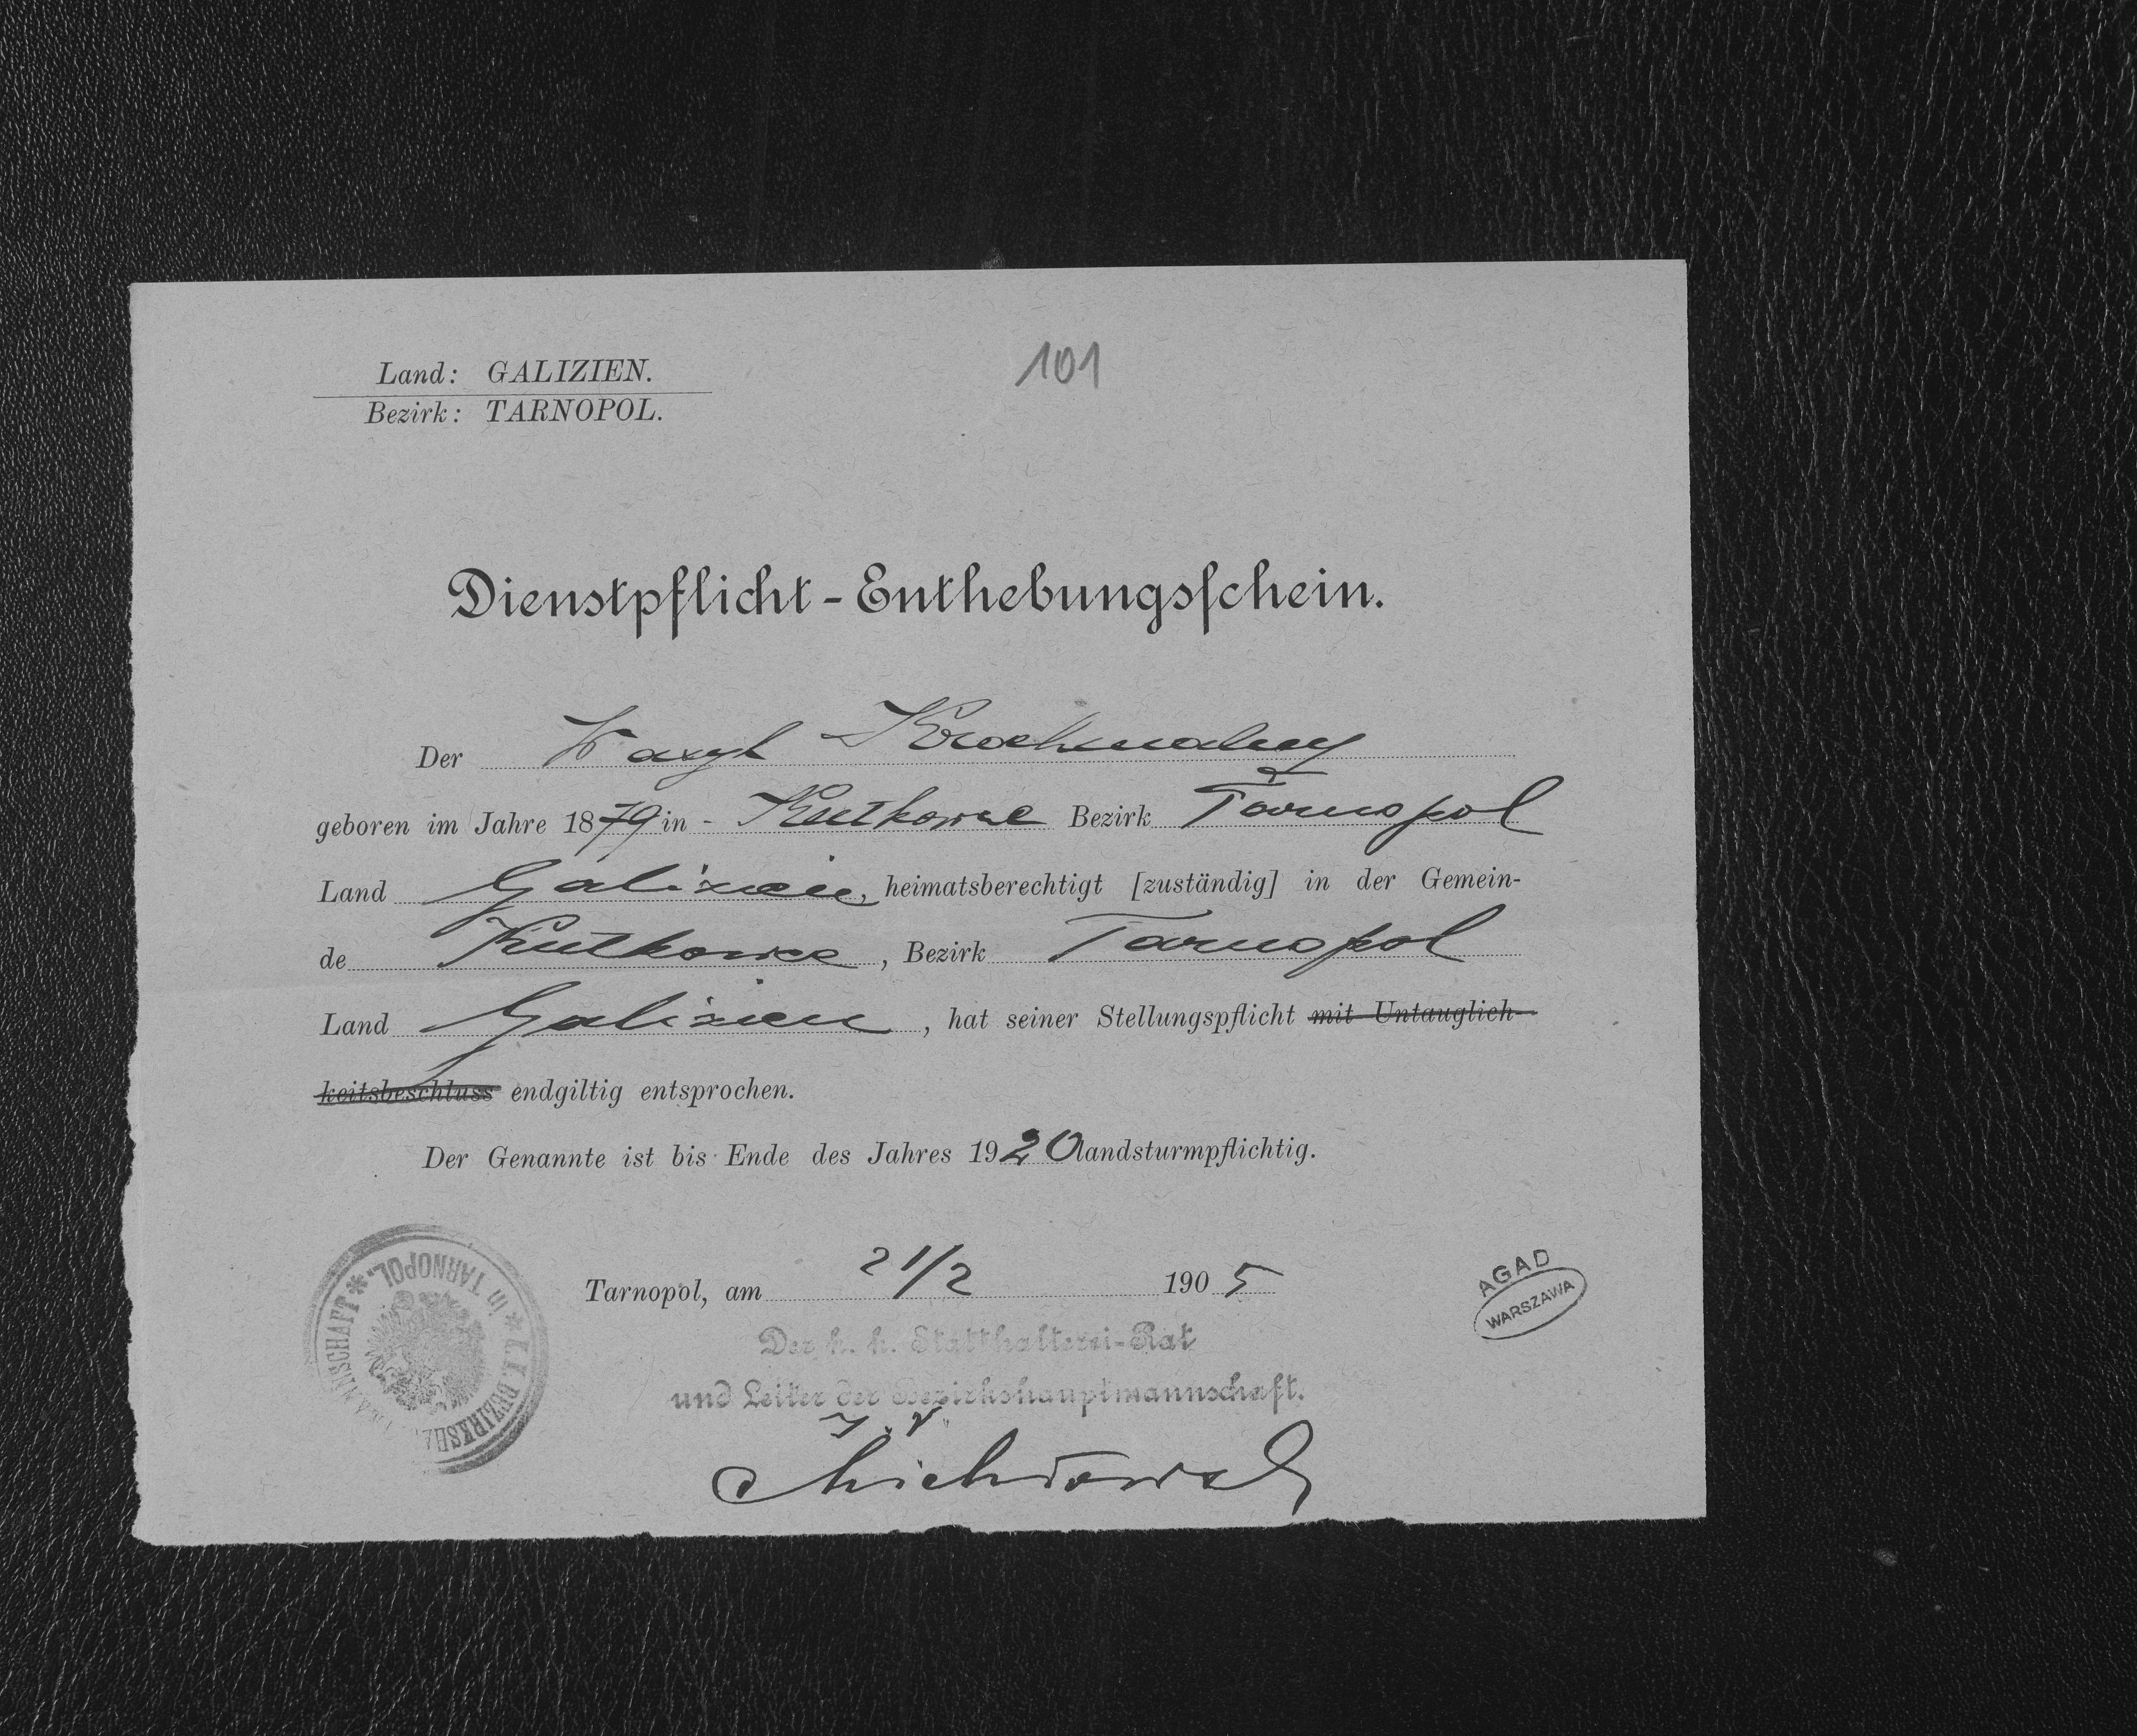 Land: GALIZIEN.
101
Bezirk: TARNOPOL.
Dienstpflicht-Enthebungsschein.
Der Wasyl Krochmalny
geboren im Jahre 1879 in - Kutkowce Bezirk Tarnopol
Land Galizien, heimatsberechtigt [zuständig] in der Gemein-
de Kutkowce, Bezirk Tarnopol
Land Galizien, hat seiner Stellungspflicht mit Untauglich-
keitsbeschluss endgiltig entsprochen.
Der Genannte ist bis Ende des Jahres 1920 landsturmpflichtig.
Tarnopol, am 21/2 1905
Der k. k. Statthalterei-Rat
und Leiter der Bezirkshauptmannschaft.
K.K. BEZIRKSHAUPTMANNSCHAFT * in TARNOPOL. *
AGAD
WARSZAWA